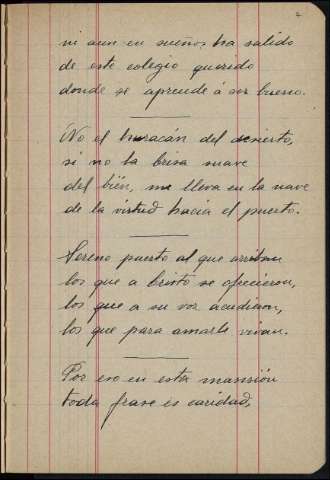 ni aun en sueños ha salido
de este colegio querido
donde se aprende á ser bueno.
No el huracán del desierto,
si no la brisa suave
del bién, me lleva en la nave
de la virtud hacia el puerto.
Sereno puerto al que arriban
los que a Cristo se ofrecieron,
los que a su voz acudieron,
los que para amarle vivan.
Por eso en esta mansión
toda frase es caridad,